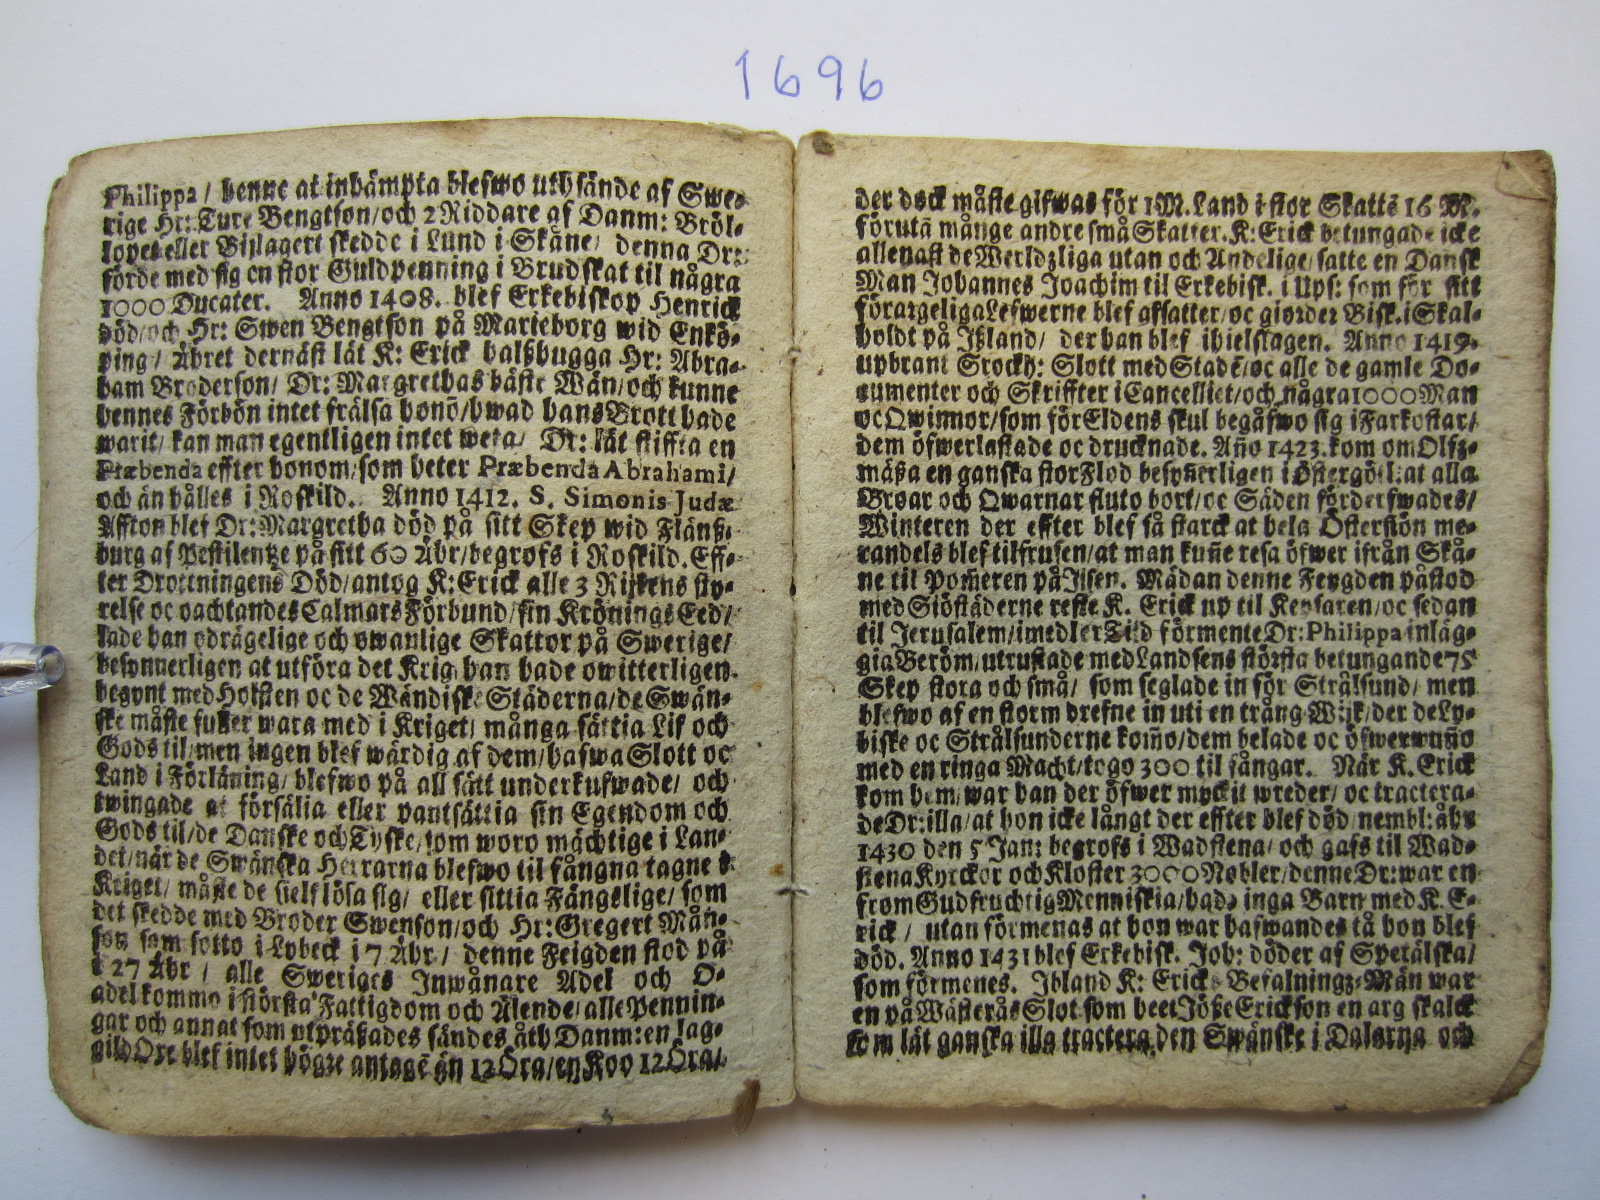 1696
Philippa / henne at inhämpta blefwo uthsände af Swe-
rige Hr: Ture Bengtson/och 2 Riddare af Danm: Bröl-
lopet eller Bijlagert skedde i Lund i Skåne/ denna Dr:
förde med sig en stor Guldpenning i Brudskat til några
1000 Ducater. Anno 1408. blef Erkebiskop Henrick
död/och Hr: Swen Bengtson på Marieborg wid Enkö-
ping / Åhret dernäst lät K: Erick halßhugga Hr: Abra-
ham Broderson/ Dr: Margrethas bäste Wän/och kunne
hennes Förbön intet frälsa honō/hwad hans Brott hade
warit/ kan man egentligen intet weta/ Dr: lät stiffta en
Præbenda effter honom/som heter Præbenda Abrahami/
och än hålles i Roskild. Anno 1412. S. Simonis Judæ
Affton blef Dr: Margretha död på sitt Skep wid Flänß-
burg af Pestilentze på sitt 60 Åhr/begrofs i Roskild. Eff-
ter Drottningens Död/antog K: Erick alle 3 Rijkens sty-
relse oc oachtandes Calmars Förbund/sin Krönings Eed/
lade han odrägelige och owanlige Skattor på Swerige/
besynnerligen at utföra det Krig han hade owitterligen
begynt med Holsten oc de Wändiske Städerna/de Swän-
ske måste fuller wara med i Kriget/ många sättia Lif och
Gods til/men ingen blef wärdig af dem/hafwa Slott oc
Land i Förläning/ blefwo på all sätt underkufwade/ och
twingade at försälia eller pantsättia sin Egendom och
Gods til/de Danske och Tyske/som woro mächtige i Lan-
det/när de Swänska Herrarna blefwo til fångna tagne i
Kriget/ måste de sielf lösa sig/ eller sittia Fängslige/ som
det skedde med Broder Swenson/och Hr: Gregert Mån-
son som sotto i Lybeck i 7 Åhr/ denne Feigden stod på
i 27 Åhr / alle Sweriges Inwånare Adel och O-
adel kommo i största Fattigdom och Älende/alle Pennin-
gar och annat som utpräßades sändes åth Danm: en lag-
gild Oxe blef intet högre antagē än 12 Öra/en Koo 12 Öra/
der dock måste gifwas för 1 M. Land i stor Skattē 16 M.
förutā månge andre små Skatter. K: Erick betungade icke
allenast de Werldzliga utan och Andelige/satte en Dansk
Man Johannes Joachim til Erkebisk. i Ups: som för sitt
förargeliga Lefwerne blef afsatter/oc giorder Bisk. i Skal-
holdt på Ißland/ der han blef ihielslagen. Anno 1419.
upbrant Stockh: Slott med Stadē/oc alle de gamle Do-
cumenter och Skriffter i Cancelliet/och några 1000 Man
oc Qwinnor/som för Eldens skul begåfwo sig i Farkostar/
dem öfwerlastade oc drucknade. Año 1423. kom om Olfz-
mäßa en ganska stor Flod besynerligen i Östergötl: at alla
Broar och Qwarnar fluto bort/oc Säden förderfwades/
Winteren der effter blef så starck at hela Östersiön me-
randels blef tilfrusen/at man kuñe resa öfwer ifrån Skå-
ne til Pom̄eren på Jisen. Mädan denne Feygden påstod
med Siöstäderne reste K. Erick up til Keysaren/oc sedan
til Jerusalem/imedler Tijd förmente Dr: Philippa inläg-
gia Beröm/utrustade med Landsens största betungande 75
Skep stora och små/ som seglade in för Strålsund/ men
blefwo af en storm drefne in uti en trång Wijk/der de Ly-
biske oc Strålsunderne kom̄o/dem helade oc öfwerwuño
med en ringa Macht/togo 300 til fångar. När K. Erick
kom hem/war han der öfwer myckit wreder/ oc tractera-
de Dr: illa/at hon icke långt der effter blef död/nembl: åhr
1430 den 5 Jan: begrofs i Wadstena/ och gafs til Wad-
stena Kyrckor och Kloster 3000 Nobler/denne Dr: war en
from Gudfruchtig Menniskia/hade inga Barn med K. E-
rick / utan förmenas at hon war hafwandes tå hon blef
död. Anno 1431 blef Erkebisk. Joh: döder af Spetälska/
som förmenes. Ibland K: Ericks Befalningz-Män war
en på Wästerås Slot som heet Jöße Erickson en arg skalck
som lät ganska illa tractera den Swänske i Dalarna och